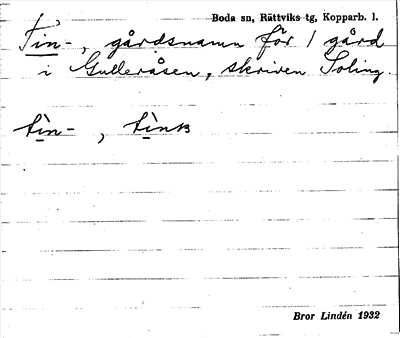 Boda sn, Rättviks tg, Kopparb. l.
Tin-, gårdsnamn för 1 gård
i Gulleråsen, skriven Soling.
tìn-, tìns
Bror Lindén 1932